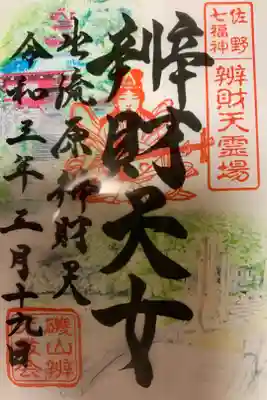 佐野
七福神
辨財天霊場
辨財天女
出流原弁財天
令和三年三月十九日
磯山辨